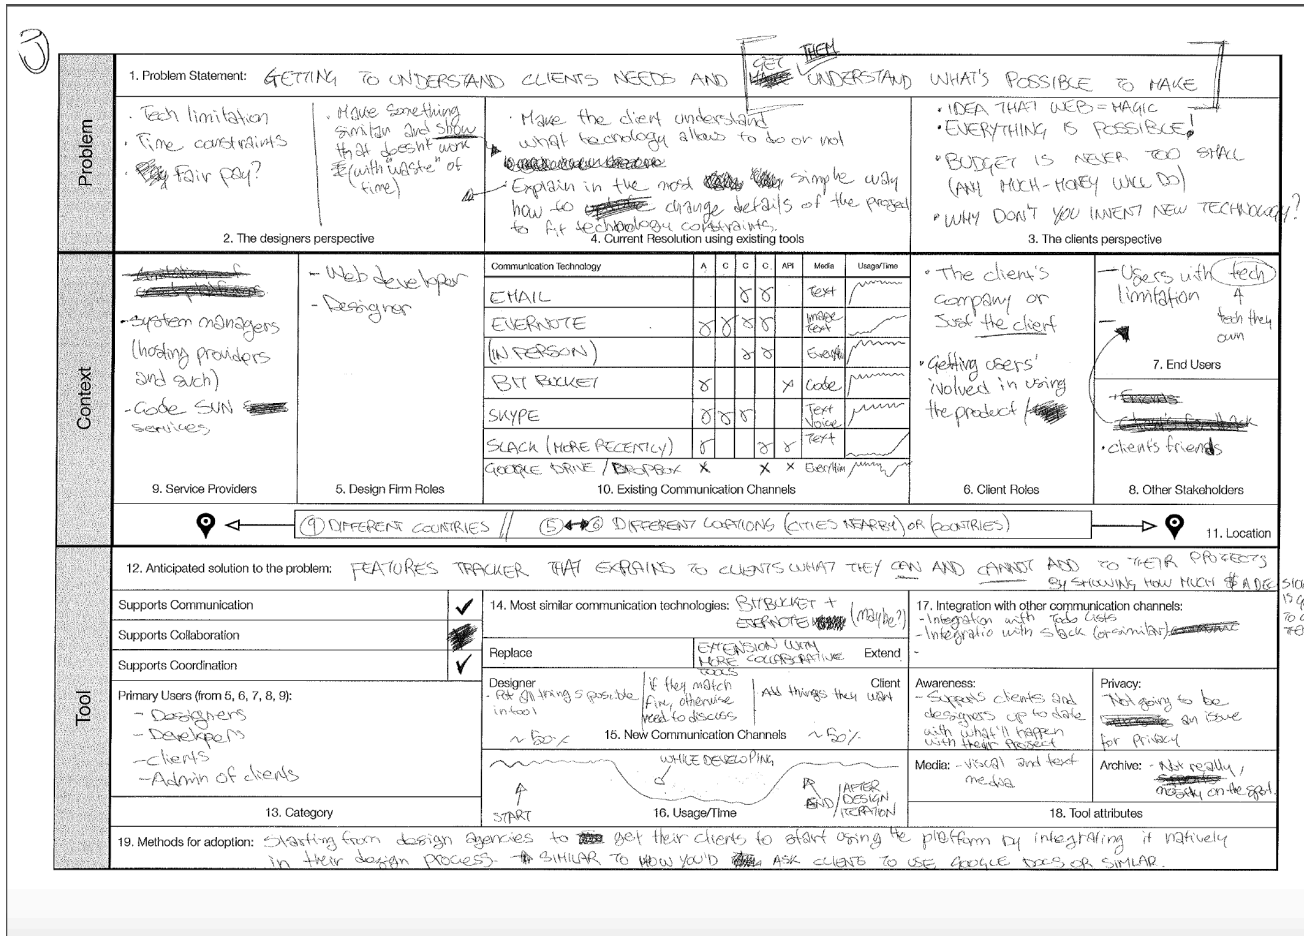 3
Problem
1. Problem Statement: GETTING TO UNDERSTAND CLIENTS NEEDS AND GET THEM UNDERSTAND WHAT'S POSSIBLE TO MAKE
· Tech limitation
· Time constraints
· Fair pay?
· Make something
similar and show
that doesn't work
(with "waste" of
time)
2. The designers perspective
· Make the client understand
what tecnology allows to do or not
· Explain in the most simple way
how to change details of the project
to fit technology constraints.
4. Current Resolution using existing tools
· IDEA THAT WEB = MAGIC
· EVERYTHING IS POSSIBLE!
· BUDGET IS NEVER TOO SMALL
(ANY MUCH-MONEY WILL DO)
· WHY DON'T YOU INVENT NEW TECHNOLOGY?
3. The clients perspective
Context
- System managers
(hosting providers
and such)
- Code SVN
services
9. Service Providers
- Web developer
- Designer
5. Design Firm Roles
Communication Technology A C C C API Media Usage/Time
EMAIL Text
EVERNOTE Image Text
(IN PERSON)
BIT BUCKET X Code
SKYPE Text Voice
SLACK (MORE RECENTLY) Text
GOOGLE DRIVE / DROPBOX X X X
10. Existing Communication Channels
· The client's
company or
Just the client
· Getting users'
ivolved in using
the product /
6. Client Roles
- Users with tech
limitation
tech they
own
7. End Users
· client's friends
8. Other Stakeholders
9 DIFFERENT COUNTRIES // 5 ↔ 6 DIFFERENT LOCATIONS (CITIES NEARBY) OR (COUNTRIES)
11. Location
Tool
12. Anticipated solution to the problem: FEATURES TRACKER THAT EXPLAINS TO CLIENTS WHAT THEY CAN AND CANNOT ADD TO THEIR PROJECTS
BY SHOWING HOW MUCH $ A DEC
Supports Communication ✓
Supports Collaboration
Supports Coordination ✓
Primary Users (from 5, 6, 7, 8, 9):
- Designers
- Developers
- clients
- Admin of clients
13. Category
14. Most similar communication technologies: BITBUCKET +
EVERNOTE (maybe?)
Replace
EXTENSION WITH
MORE COLLABORATIVE
TOOLS
Extend
Designer
- Put all things possible
in tool
~ 50%
if they match
fine, otherwise
need to discuss
Client
Add things they want
~ 50%
15. New Communication Channels
WHILE DEVELOPING
START
END / AFTER
DESIGN
ITERATION
16. Usage/Time
17. Integration with other communication channels:
- Integration with Todo Lists
- Integratio with Slack (or similar)
-
Awareness:
- Supports clients and
designers up to date
with what'll happen
with their project
Privacy:
Not going to be
an issue
for privacy
Media: - Visual and text
media
Archive: - Not really,
mostly on the spot.
18. Tool attributes
19. Methods for adoption: Starting from design agencies to get their clients to start using the platform by integrating it natively
in their design process. SIMILAR TO HOW YOU'D ASK CLIENT TO USE GOOGLE DOCS OR SIMILAR.